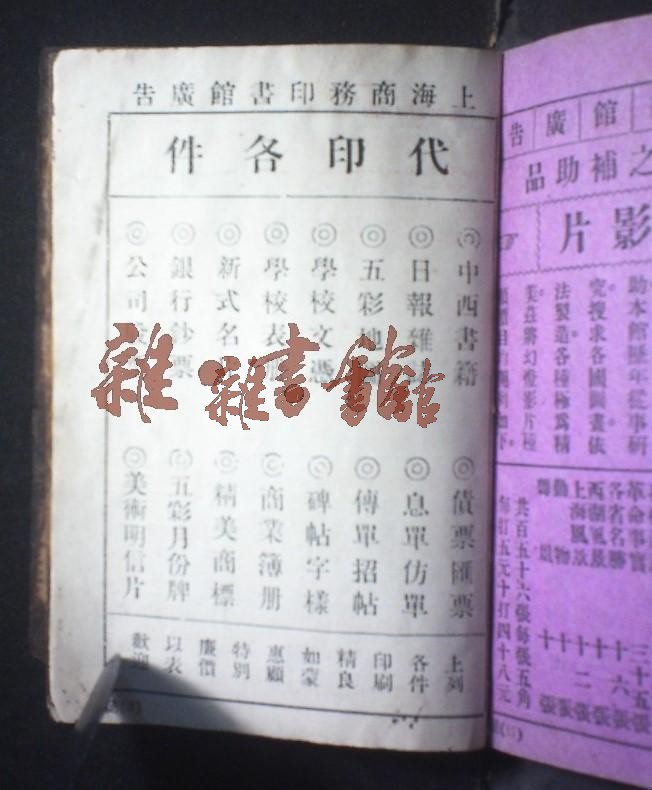 上海商務印書館廣告
代印各件
◎中西書籍
◎日報雜
◎五彩地
◎學校文憑
◎學校表
◎新式名
◎銀行鈔票
◎公司
◎債票匯票
◎息單仿單
◎傳單招帖
◎碑帖字樣
◎商業簿册
◎精美商標
◎五彩月份牌
◎美術明信片
上列
各件
印刷
精良
如蒙
惠顧
特別
廉價
以表
歡迎
雜 雜書館
館廣告
之補助品
影片
助本館歷年從事研
究。搜求各國圖畫依
法製造。各種極爲精
美。茲將幻燈影片種
列如下。
革命事實
各省名勝
西湖風景
上海風景
動物
共百五十六張每張五角
每打五元十打四十八元